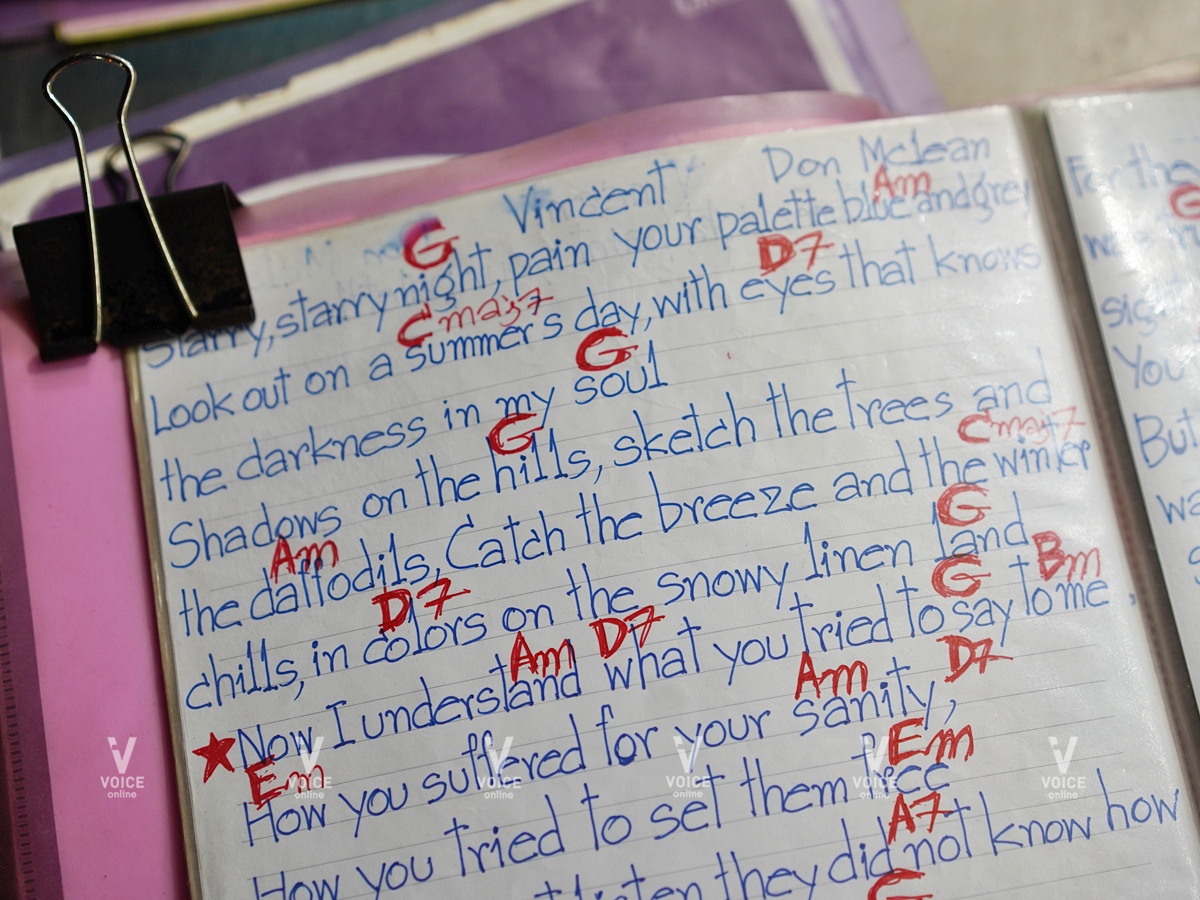 Vincent Don Mclean
G Am
Starry, starry night, pain your palette blue and grey
Cmaj7 D7
Look out on a summer's day, with eyes that knows
G
the darkness in my soul
G
Shadows on the hills, sketch the trees and
Am Cmaj7
the daffodils, Catch the breeze and the winter
D7 G
chills, in colors on the snowy linen land
Am D7 G Bm
★Now I understand what you tried to say to me
Em Am D7
How you suffered for your sanity,
Em
How you tried to set them free
A7
listen they did not know how
G
For the
G
sig
You
But
VOICE online VOICE online VOICE online VOICE online VOICE online VOICE online